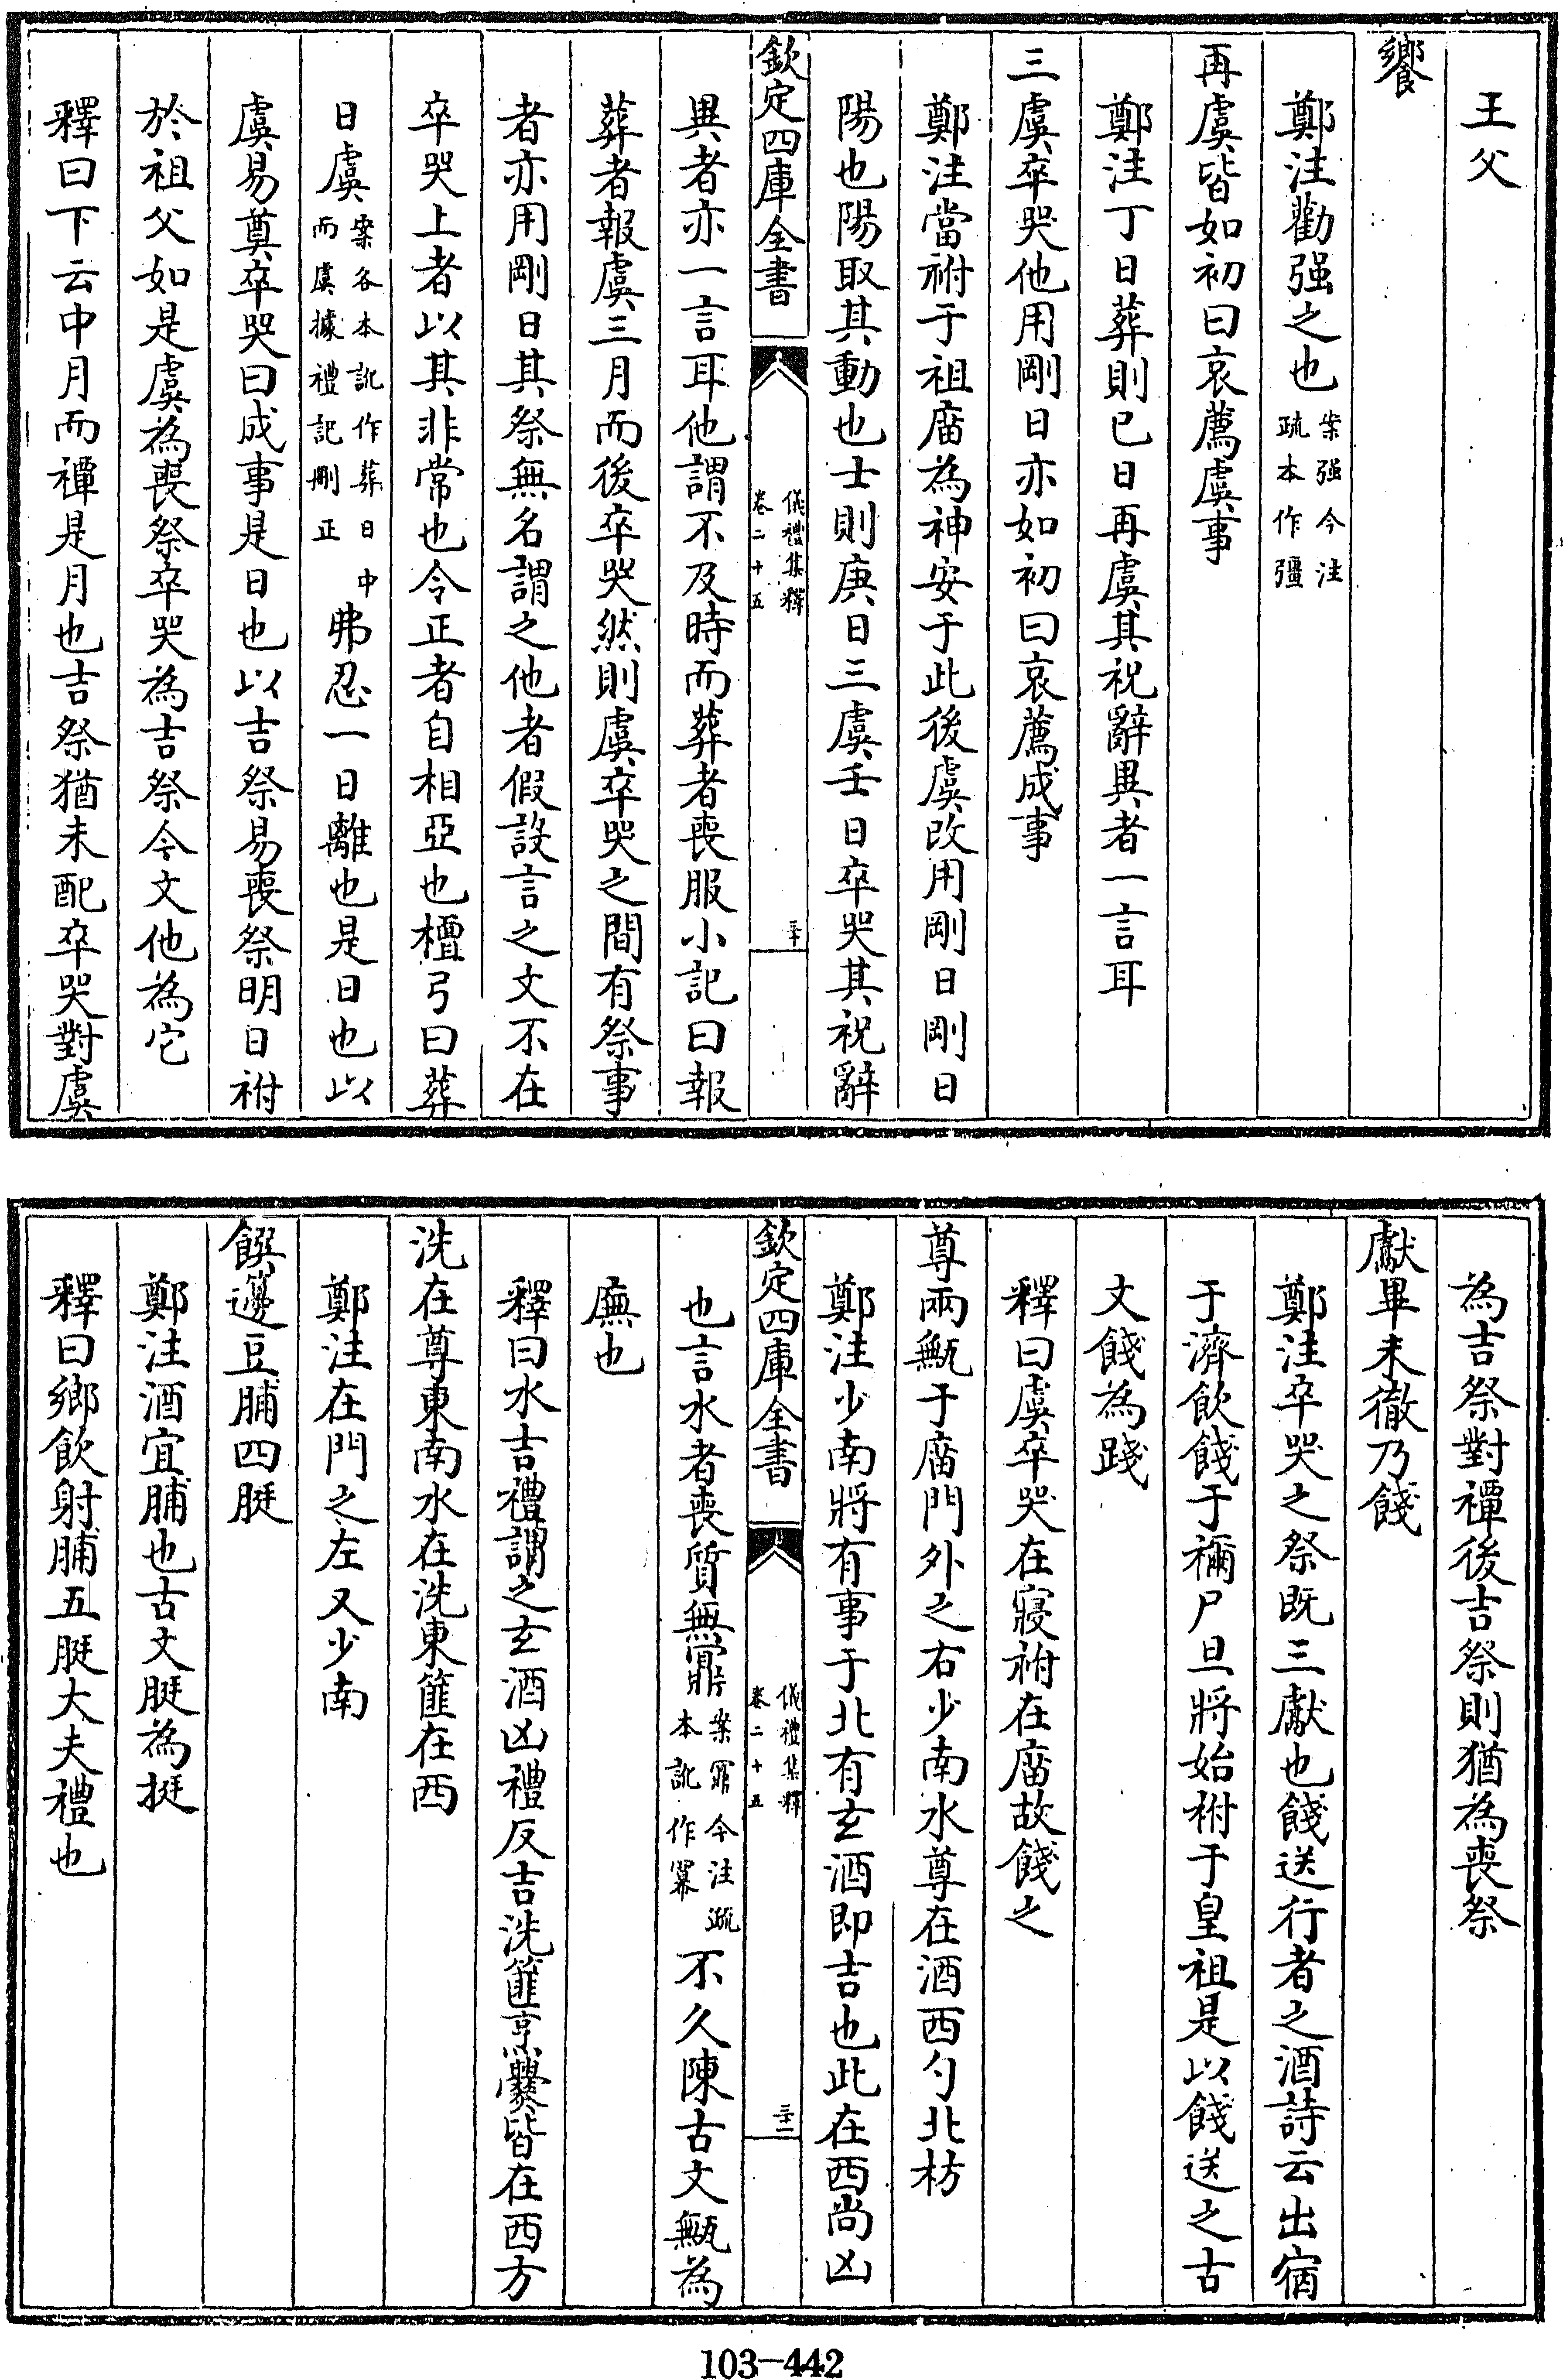 王父
饗
鄭注勸强之也案强今注疏本作彊
再虞皆如初曰哀薦虞事
鄭注丁日葬則已日再虞其祝辭異者一言耳
三虞卒哭他用剛日亦如初曰哀薦成事
鄭注當祔于祖廟為神安于此後虞改用剛日剛日
陽也陽取其動也士則庚日三虞壬日卒哭其祝辭
欽定四庫全書 儀禮集釋 卷二十五 三十
異者亦一言耳他謂不及時而葬者喪服小記曰報
葬者報虞三月而後卒哭然則虞卒哭之間有祭事
者亦用剛日其祭無名謂之他者假設言之文不在
卒哭上者以其非常也令正者自相亞也檀弓曰葬
日虞案各本訛作葬日中而虞據禮記刪正弗忍一日離也是日也以
虞易奠卒哭曰成事是日也以吉祭易喪祭明日祔
於祖父如是虞為喪祭卒哭為吉祭今文他為它
釋曰下云中月而禫是月也吉祭猶未配卒哭對虞
為吉祭對禫後吉祭則猶為喪祭
獻畢未徹乃餞
鄭注卒哭之祭既三獻也餞送行者之酒詩云出宿
于濟飲餞于禰尸旦將始祔于皇祖是以餞送之古
文餞為踐
釋曰虞卒哭在寢祔在廟故餞之
尊兩甒于廟門外之右少南水尊在酒西勺北枋
鄭注少南將有事于北有玄酒即吉也此在西尚凶
欽定四庫全書 儀禮集釋 卷二十五 三十一
也言水者喪質無鼏案鼏今注疏本訛作冪不久陳古文甒為
廡也
釋曰水吉禮謂之玄酒凶禮反吉洗篚亰爨皆在西方
洗在尊東南水在洗東篚在西
鄭注在門之左又少南
饌籩豆脯四脡
鄭注酒宜脯也古文脡為挺
釋曰鄉飲射脯五脡大夫禮也
103-442